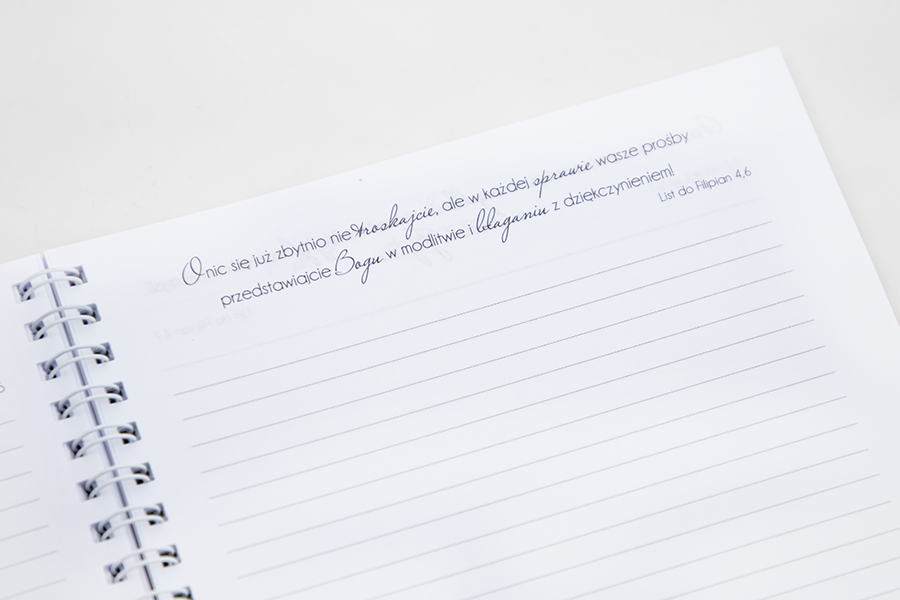 O nic się już zbytnio nie troskajcie, ale w każdej sprawie wasze prośby
przedstawiajcie Bogu w modlitwie i błaganiu z dziękczynieniem!
List do Filipian 4,6